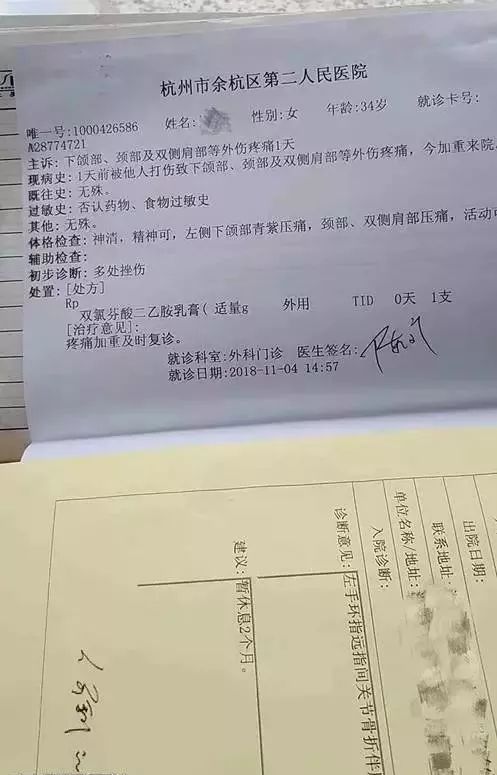 杭州市余杭区第二人民医院
唯一号:1000426586 姓名: 性别:女 年龄:34岁 就诊卡号:
A28774721
主诉: 下颌部、颈部及双侧肩部等外伤疼痛1天
现病史: 1天前被他人打伤致下颌部、颈部及双侧肩部等外伤疼痛, 今加重来院。
既往史: 无殊。
过敏史: 否认药物、食物过敏史
其他: 无殊。
体格检查: 神清, 精神可, 左侧下颌部青紫压痛, 颈部、双侧肩部压痛, 活动可
辅助检查:
初步诊断: 多处挫伤
处置: [处方]
Rp
双氯芬酸二乙胺乳膏( 适量g 外用 TID 0天 1支
[治疗意见]:
疼痛加重及时复诊。
就诊科室:外科门诊 医生签名:
就诊日期:2018-11-04 14:57
出院日期:
联系地址:
单位名称/地址:
入院诊断:
诊断意见: 左手环指远指间关节骨折伴
建议: 暂休息2个月。